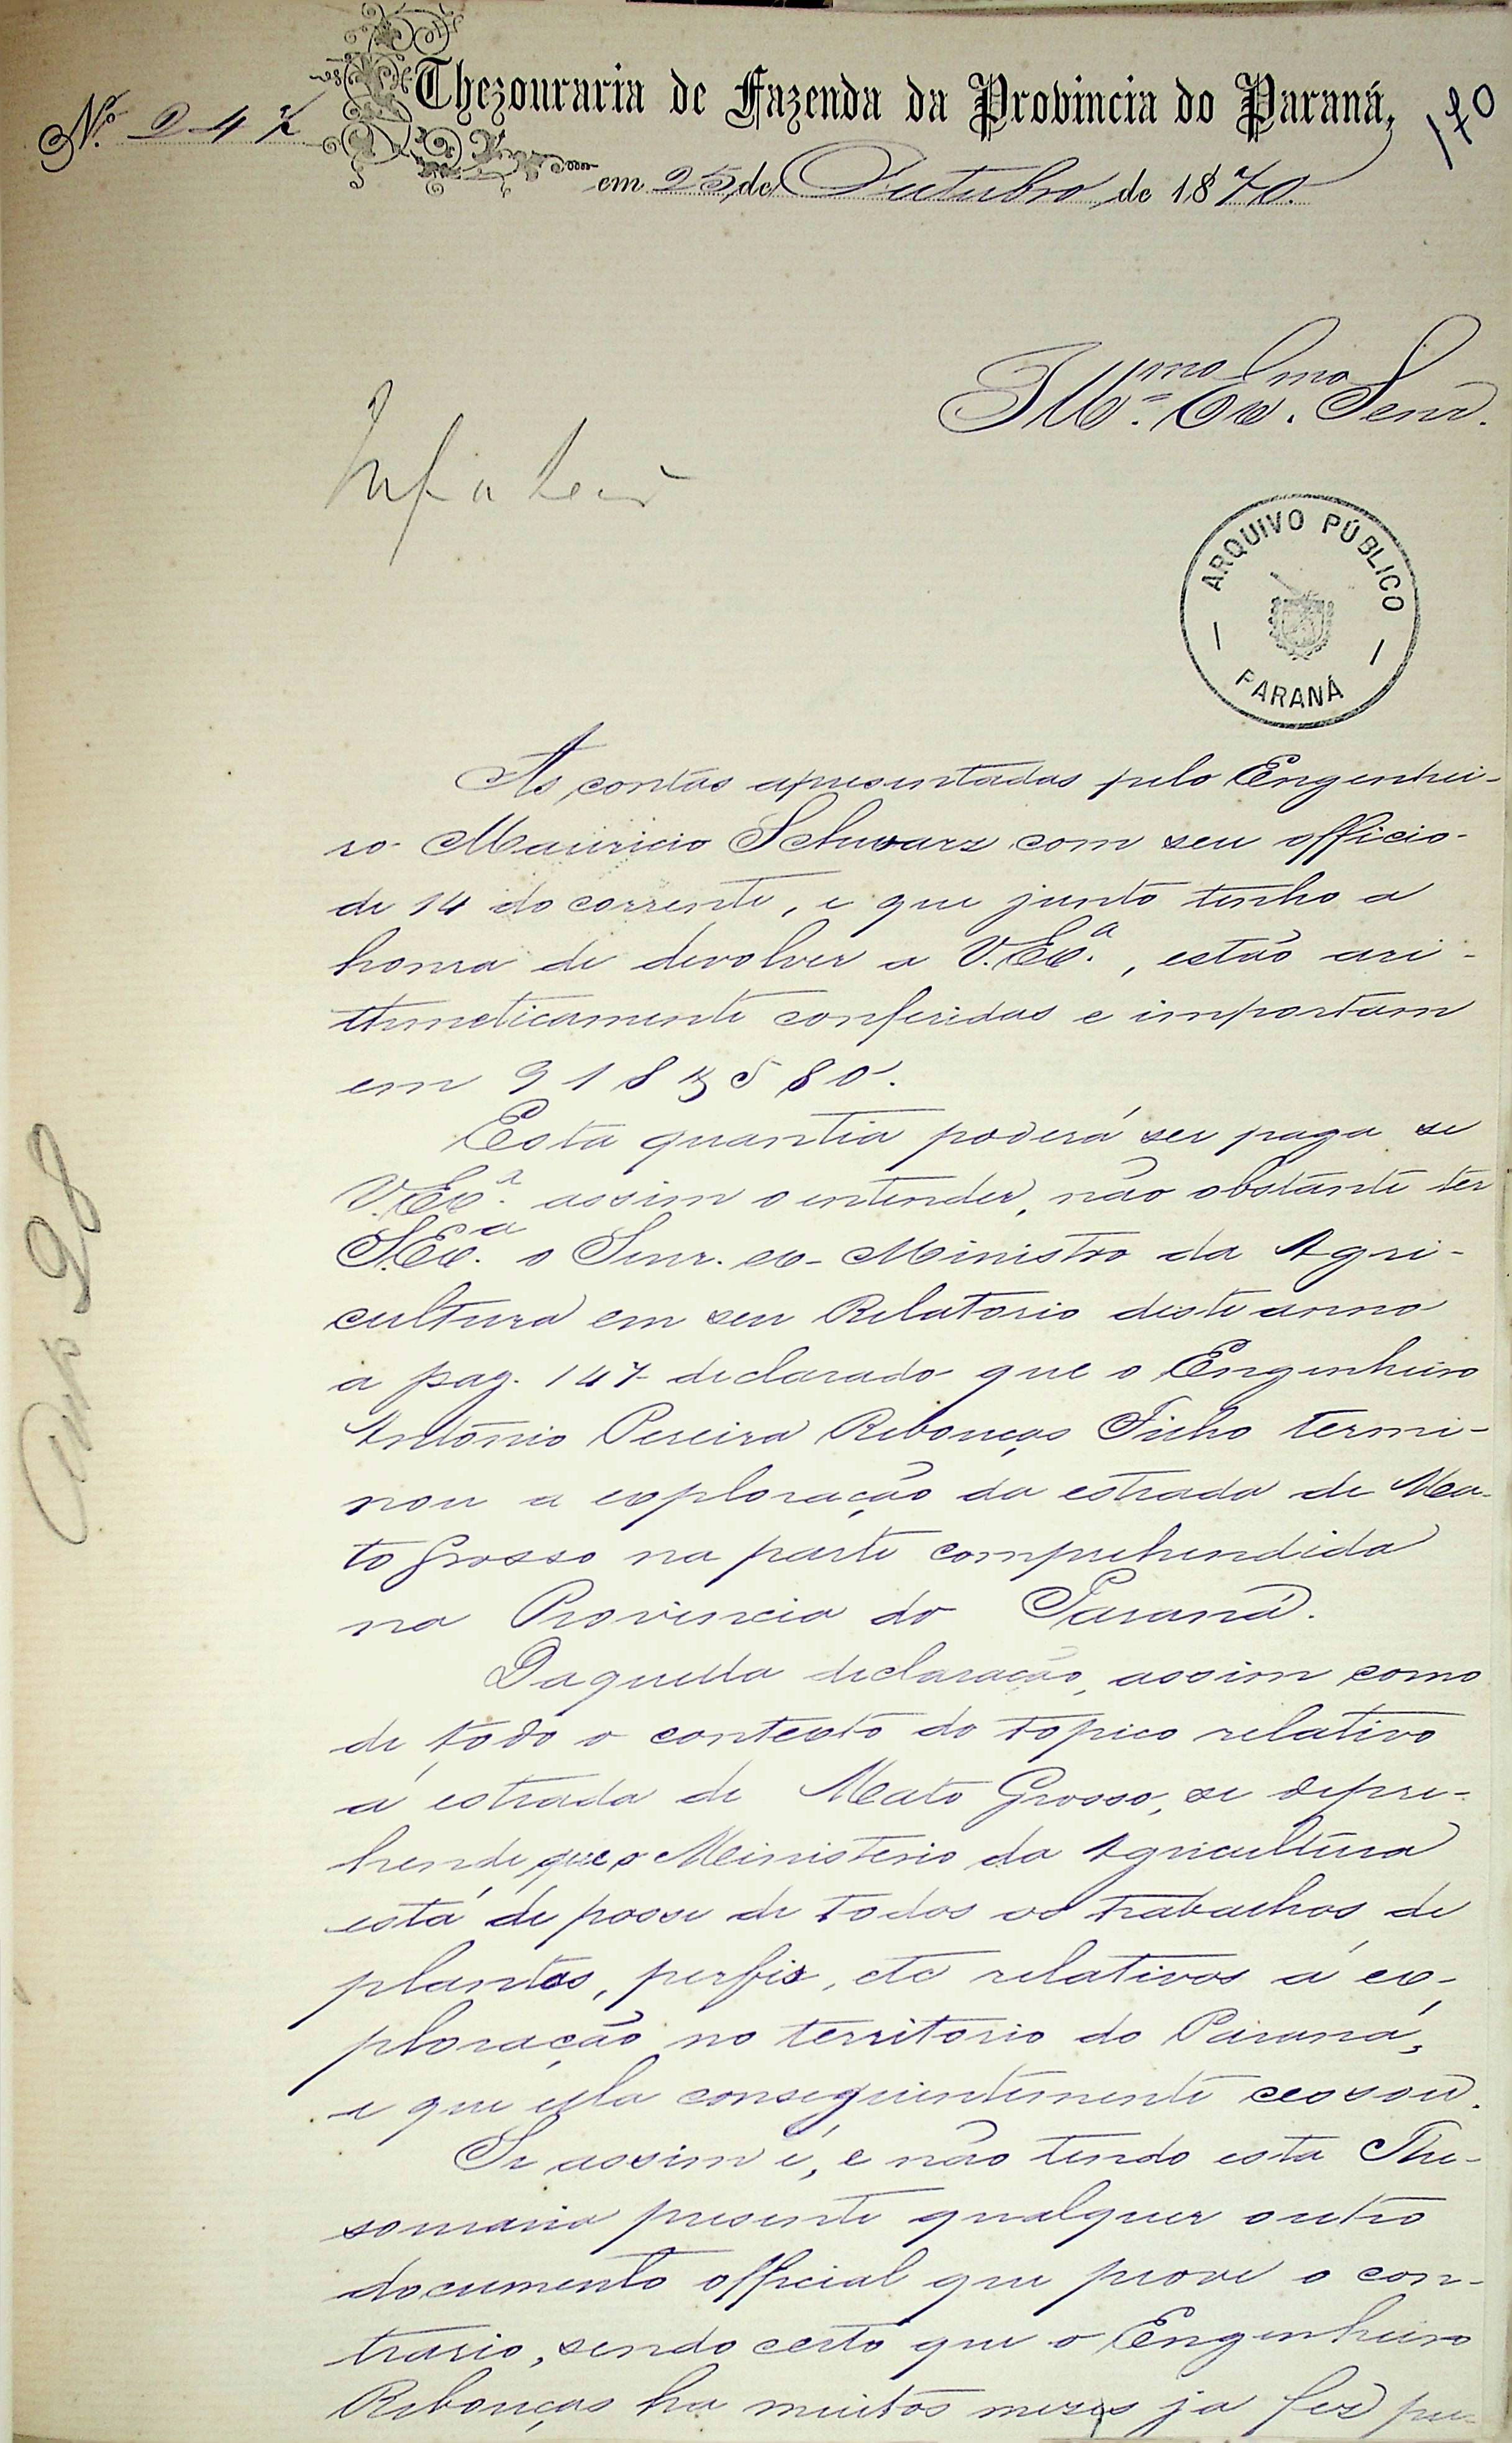 Thezouraria de Fazenda da Provincia do Paraná,
Nº 247
170
em 25 de Outubro de 1870.
Illmo. Exmo. Senr.
ARQUIVO PÚBLICO
PARANÁ
As contas apresentadas pelo Engenhei-
ro Mauricio Schwarz com seu officio
de 14 do corrente, e que junto tenho a
honra de devolver a V. Exa., estão ari-
thmeticamente conferidas e importam
em 918$580.
Esta quantia poderá ser paga se
V. Exa. assim o entender, não obstante ter
S. Exa. o Senr. ex-Ministro da Agri-
cultura em seu Relatorio deste anno
a pag. 147 declarado que o Engenheiro
Antonio Pereira Rebouças Filho termi-
nou a exploração da estrada de Ma-
to Grosso na parte comprehendida
na Provincia do Paraná.
Daquella declaração, assim como
de todo o contexto do topico relativo
á estrada de Mato Grosso, se depre-
hende que o Ministerio da Agricultura
está de posse de todos os trabalhos de
plantas, perfis, etc relativos á ex-
ploração no territorio do Paraná,
e que ella conseguintemente cessou.
Se assim é, e não tendo esta The-
souraria presente qualquer outro
documento official que prove o con-
trario, sendo certo que o Engenheiro
Rebouças ha muitos mezes ja fez pu-